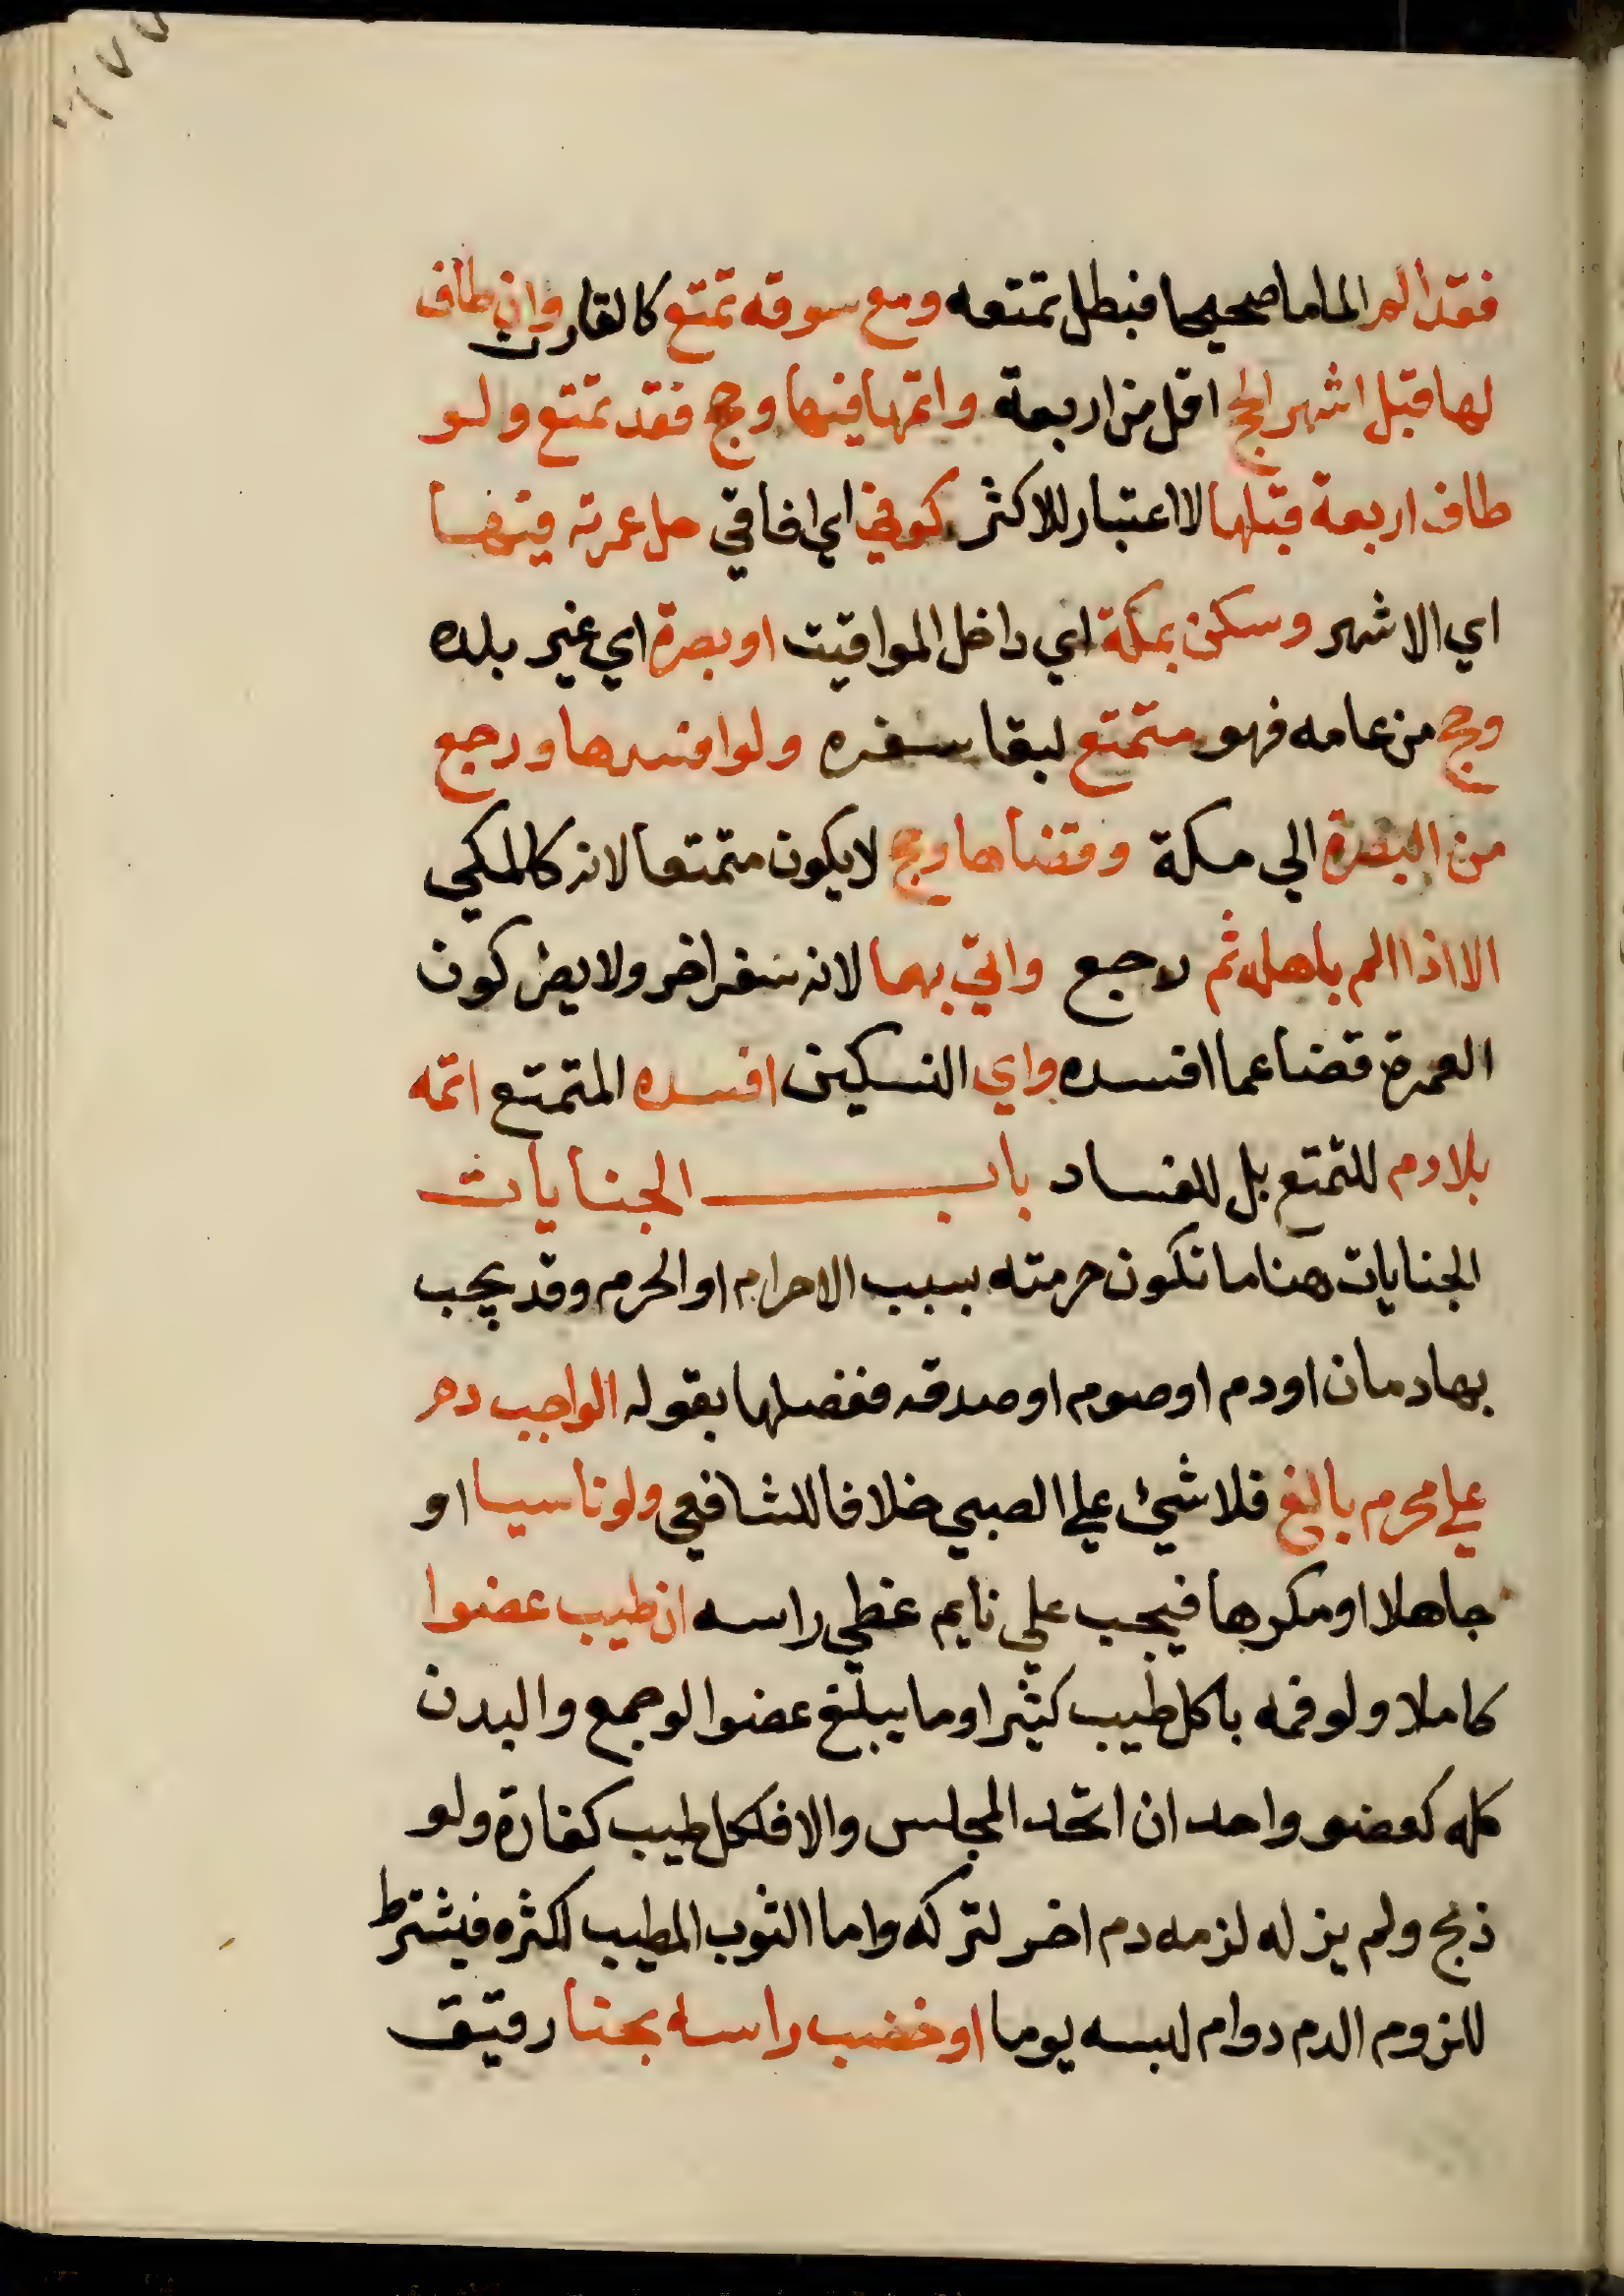 ١٧٧
فقد الم الماما صحيحا فبطل تمتعه ومع سوقه تمتع كالقارن وان طاف
لها قبل اشهر الحج اقل من اربعة واتمها فيها وحج فقد تمتع ولو
طاف اربعة قبلها لا اعتبار للاكثر كوفي اي افاقي حل عمرته فيها
اي الاشهر وسكن بمكة اي داخل المواقيت او بصرة اي غير بلده
وحج من عامه فهو متمتع لبقا سفره ولو افسدها ورجع
من البصرة الي مكة وقضاها وحج لا يكون متمتعا لانه كالمكي
الا اذا الم باهله ثم رجع واتي بهما لانه سفر اخر ولا يضر كون
العمرة قضا عما افسده واي النسكين افسده المتمتع اتمه
بلا دم للتمتع بل للفساد باب الجنايات
الجنايات هنا ما تكون حرمته بسبب الاحرام او الحرم وقد يجب
بها دمان او دم او صوم او صدقه ففصلها بقوله الواجب دم
علي محرم بالغ فلا شئ علي الصبي خلافا للشافعي ولو ناسيا او
جاهلا او مكرها فيجب علي نايم غطي راسه ان طيب عضوا
كاملا ولو فمه باكل طيب كثير او ما يبلغ عضوا لو جمع والبدن
كله كعضو واحد ان اتحد المجلس والا فلكل طيب كفارة ولو
ذبح ولم يزله لزمه دم اخر لتركه واما الثوب المطيب اكثره فيشترط
للزوم الدم دوام لبسه يوما او خضب راسه بحنا رقيق